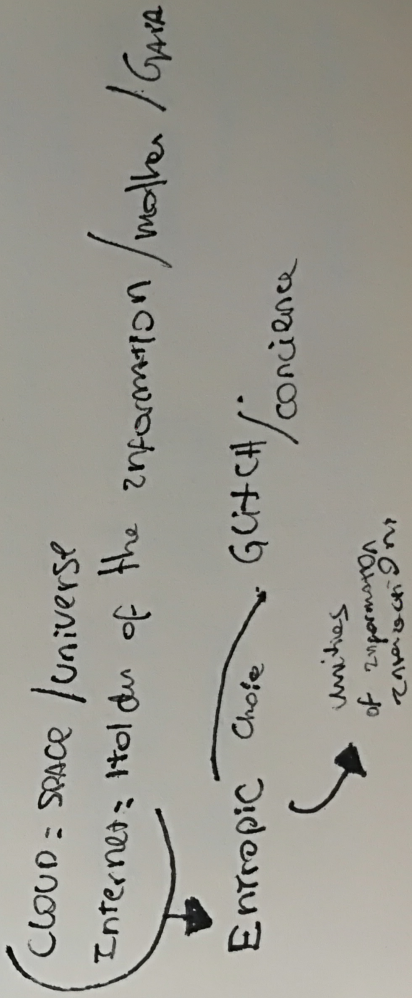 CLOUD = SPACE / UNIVERSE
Internet = Holder of the information / mother / GAIA
Entropic Choise GLITCH / concience
unities
of information